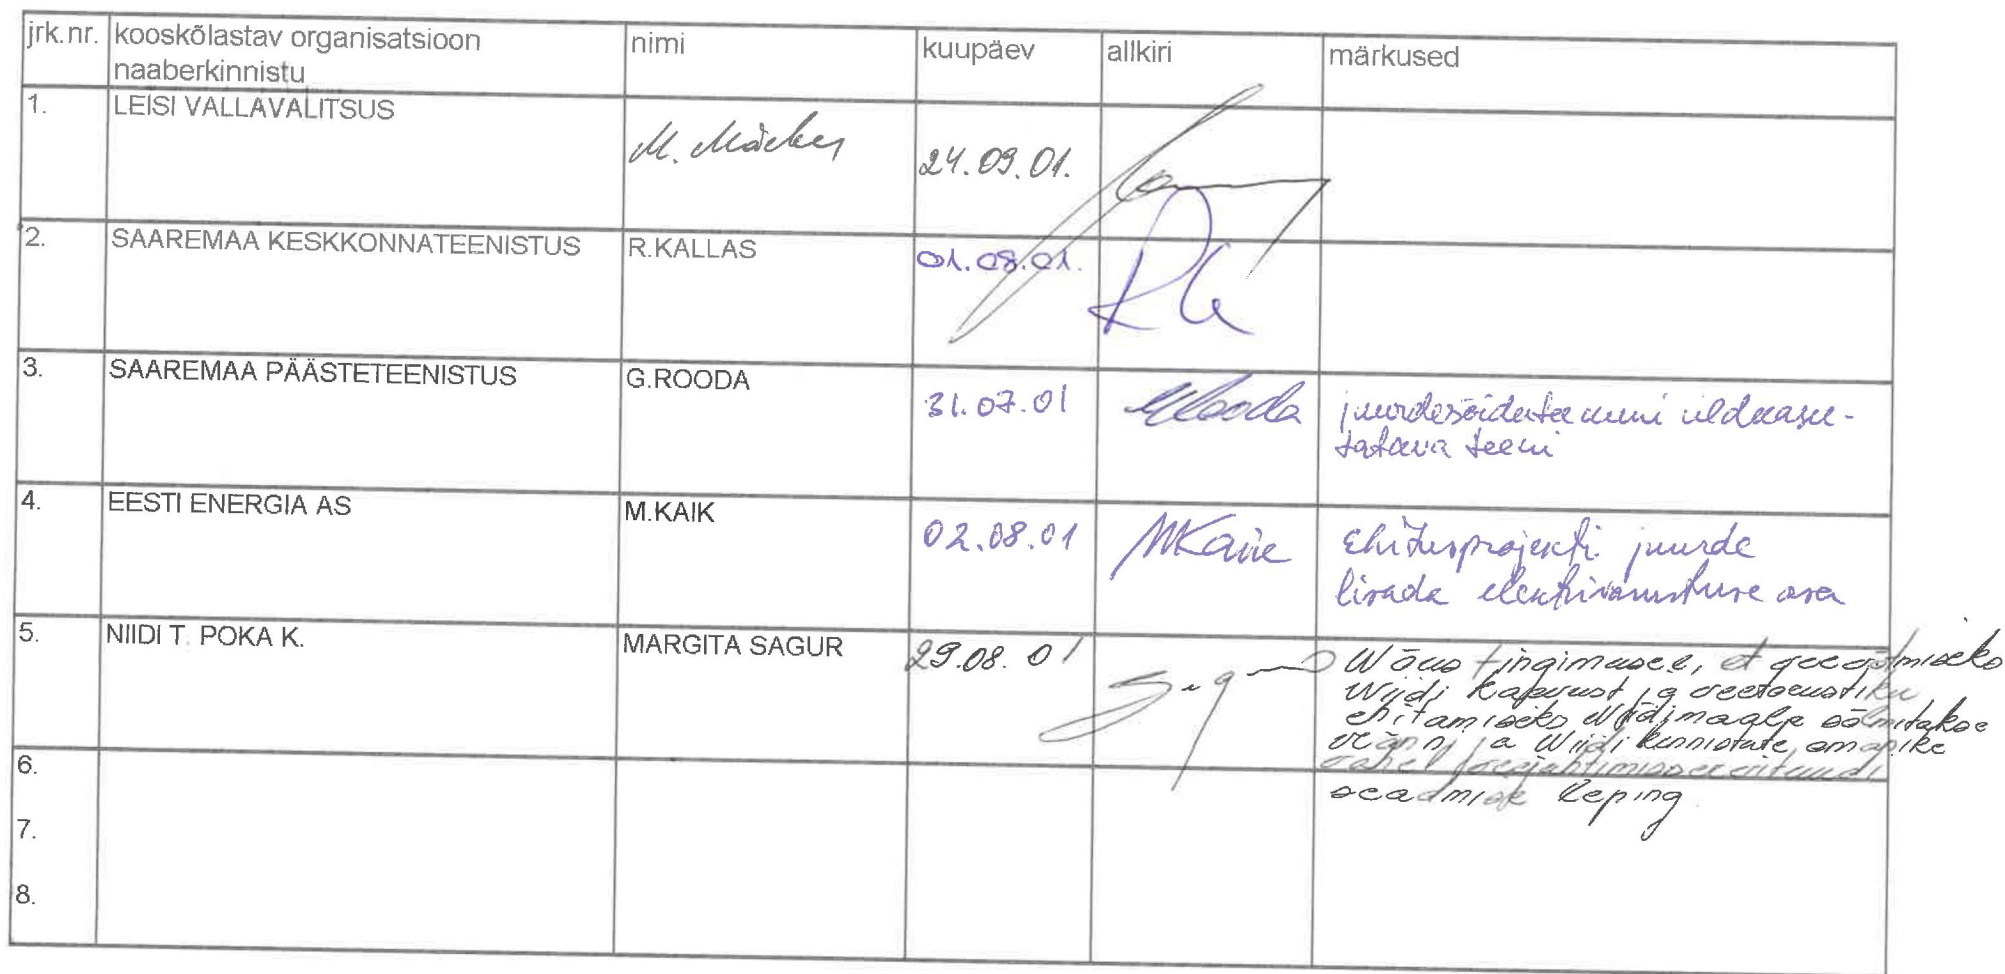 jrk.nr. kooskõlastav organisatsioon nimi kuupäev allkiri märkused
naaberkinnistu
1. LEISI VALLAVALITSUS M. 24.09.01.
2. SAAREMAA KESKKONNATEENISTUS R.KALLAS 01.08.01.
3. SAAREMAA PÄÄSTETEENISTUS G.ROODA 31.07.01 juurdesõidutee kuni üldkasu-
tatava teeni
4. EESTI ENERGIA AS M.KAIK 02.08.01 Ehitusprojekti juurde
lisada elektrivarustuse osa
5. NIIDI T. POKA K. MARGITA SAGUR 29.08.01 Nõus tingimusel, et veevõtmiseks
Niidi kaevust ja veetorustiku
ehitamiseks Niidi maale sõlmitakse
ja Niidi kinnistute omanike
vahel
seadmise leping
6.
7.
8.